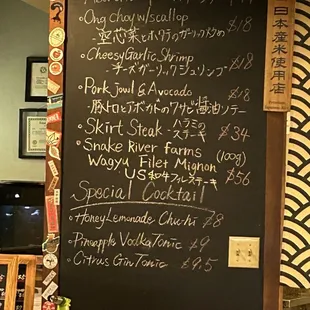 ・Ong choy w/scallop $18
空芯菜とホタテのガーリックソテー
・Cheesy Garlic Shrimp $18
チーズガーリックシュリンプ
・Pork Jowl & Avocado $18
豚トロとアボカドのワサビ醤油ソテー
・Skirt Steak ハラミのステーキ $34
・Snake River farms
Wagyu Filet Mignon (100g)
US和牛フィレステーキ $56
Special Cocktail
・Honey Lemonade Chu-hi $8
・Pineapple Vodka Tonic $9
・Citrus Gin Tonic $9.5
日本産米使用店